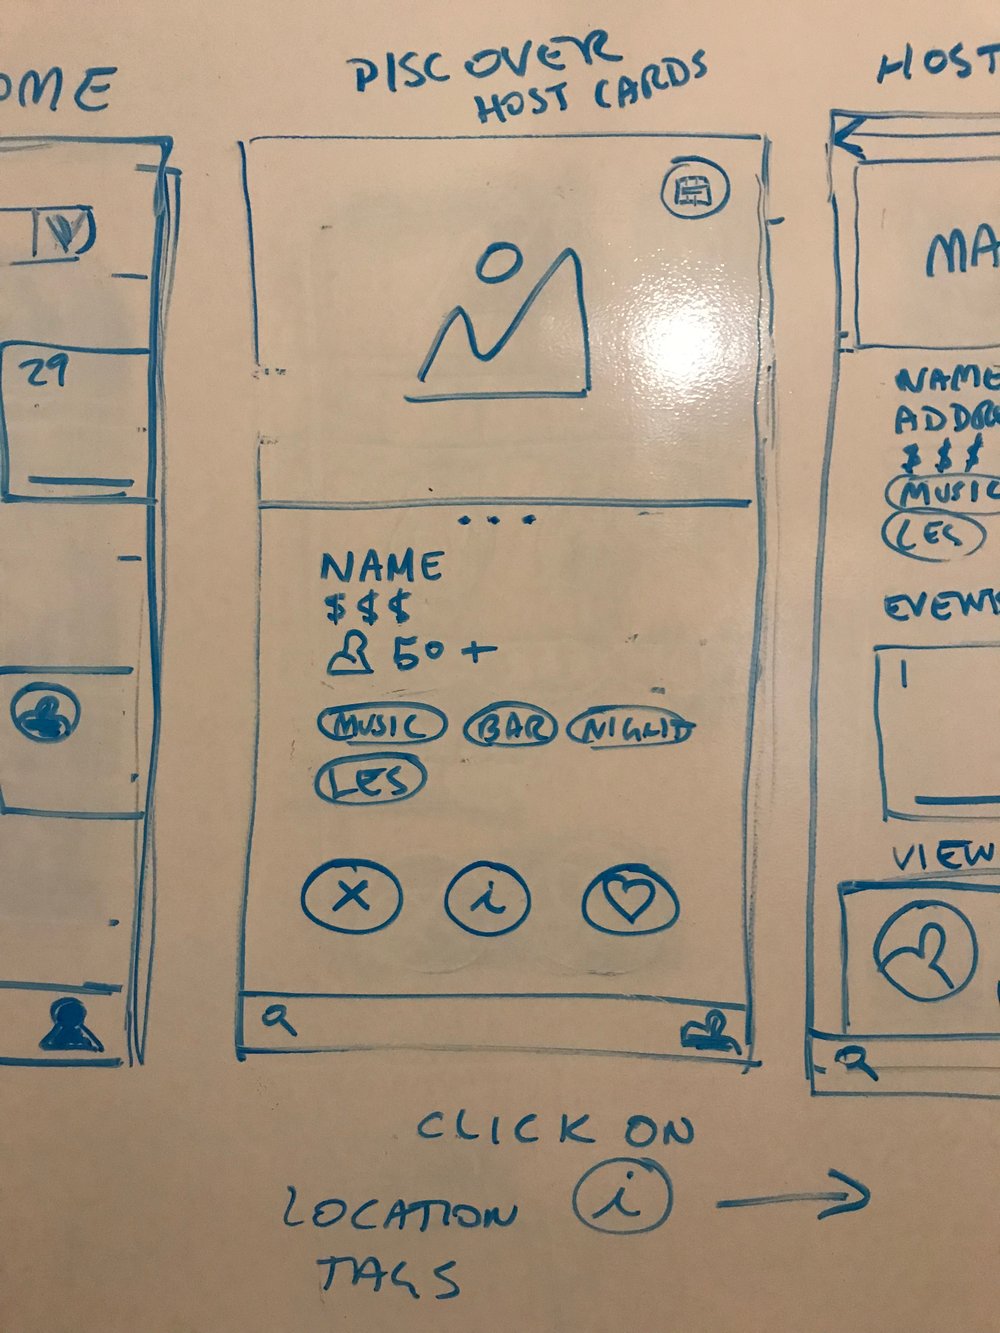 OME
29
DISCOVER
HOST CARDS
NAME
$$$
50+
MUSIC BAR
LES
X i
CLICK ON
i
LOCATION
TAGS
HOST
MA
NAME
ADDR
$$$
MUSIC
LES
EVENTS
1
VIEW